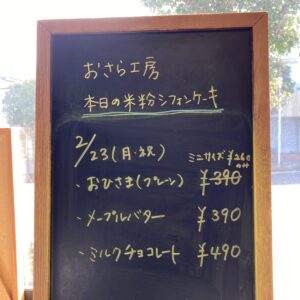 おさら工房
本日の米粉シフォンケーキ
2/23(月・祝)
ミニサイズ ¥260のみ
・おひさま(プレーン) ¥390
・メープルバター ¥390
・ミルクチョコレート ¥490